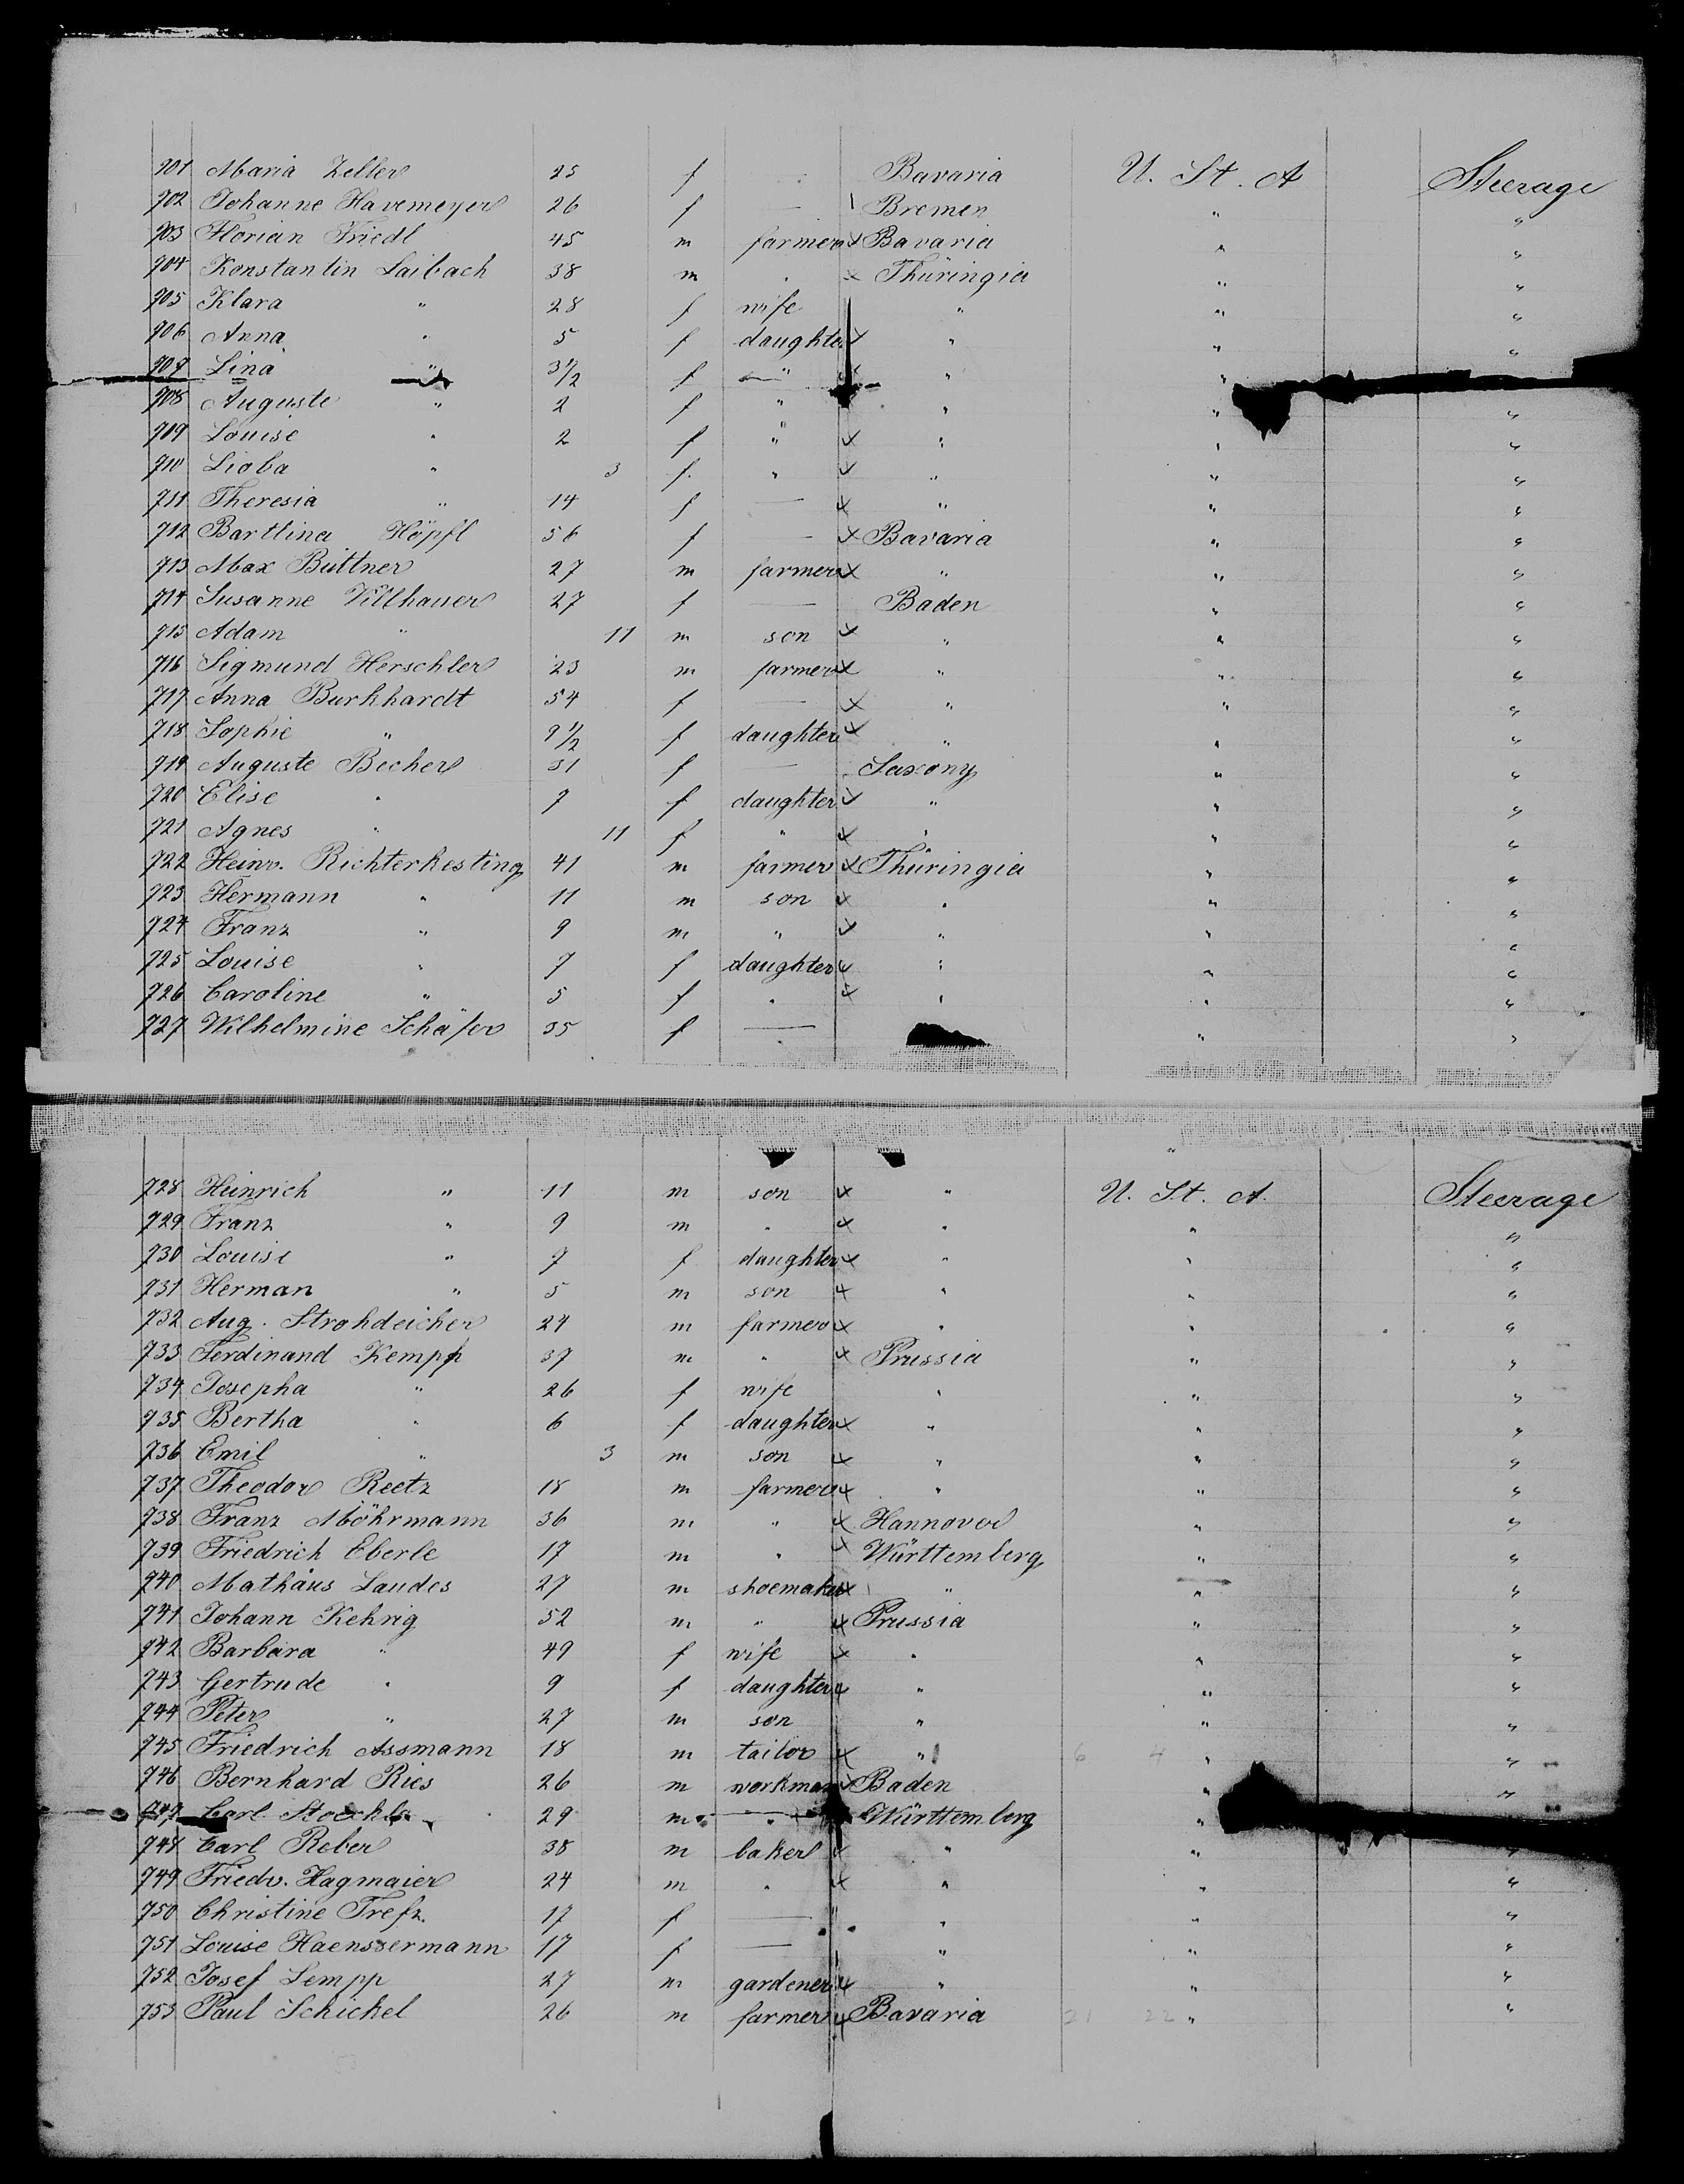 701 Maria Zeller 25 f — Bavaria U. St. A Steerage
702 Johanne Havemeyer 26 f — Bremen " "
703 Florian Friedl 45 m farmer x Bavaria " "
704 Konstantin Laibach 38 m " x Thüringia " "
705 Klara " 28 f wife " " "
706 Anna " 5 f daughter x " " "
707 Lina " 3 1/2 f " x " "
708 Auguste " 2 f " " " "
709 Louise " 2 f " x " " "
710 Lioba " 3 f. " x " " "
711 Theresia " 14 f — x " " "
712 Bartlina Höpfl 56 f — x Bavaria " "
713 Max Büttner 27 m farmer x " " "
714 Susanne Villhauer 27 f — Baden " "
715 Adam " 11 m son x " " "
716 Sigmund Herschler 23 m farmer x " " "
717 Anna Burkhardt 54 f — x " " "
718 Sophie " 9 1/2 f daughter x " " "
719 Auguste Becher 31 f — Saxony " "
720 Elise " 7 f daughter x " " "
721 Agnes " 11 f " x " " "
722 Heinr. Richterkesting 41 m farmer x Thüringia " "
723 Hermann " 11 m son x " " "
724 Franz " 9 m " x " " "
725 Louise " 7 f daughter x " " "
726 Caroline " 5 f " x " " "
727 Wilhelmine Schäfer 35 f — " "
728 Heinrich " 11 m son x " U. St. A. Steerage
729 Franz " 9 m " x " " "
730 Louise " 7 f daughter x " " "
731 Herman " 5 m son x " " "
732 Aug. Strohdeicher 24 m farmer x " " "
733 Ferdinand Kempf 37 m " x Prussia " "
734 Josepha " 26 f wife " " "
735 Bertha " 6 f daughter x " " "
736 Emil " 3 m son x " " "
737 Theodor Reetz 18 m farmer x " " "
738 Franz Möhrmann 36 m " x Hannover " "
739 Friedrich Eberle 17 m " x Württemberg " "
740 Mathäus Landes 27 m shoemaker x " " "
741 Johann Kehrig 52 m " x Prussia " "
742 Barbara " 49 f wife x " " "
743 Gertrude " 9 f daughter x " " "
744 Peter " 27 m son " " "
745 Friedrich Assmann 18 m tailor x " 6 4 " "
746 Bernhard Ries 26 m workman x Baden " "
747 Carl 29 m " Württemberg "
748 Carl Reber 38 m baker x " " "
749 Friedr. Hagmaier 24 m " x " " "
750 Christine Trefz. 17 f — " " "
751 Louise Haenssermann 17 f — " " "
752 Josef Lempp 27 m gardener x " " "
753 Paul Schickel 26 m farmer x Bavaria 21 22 " "